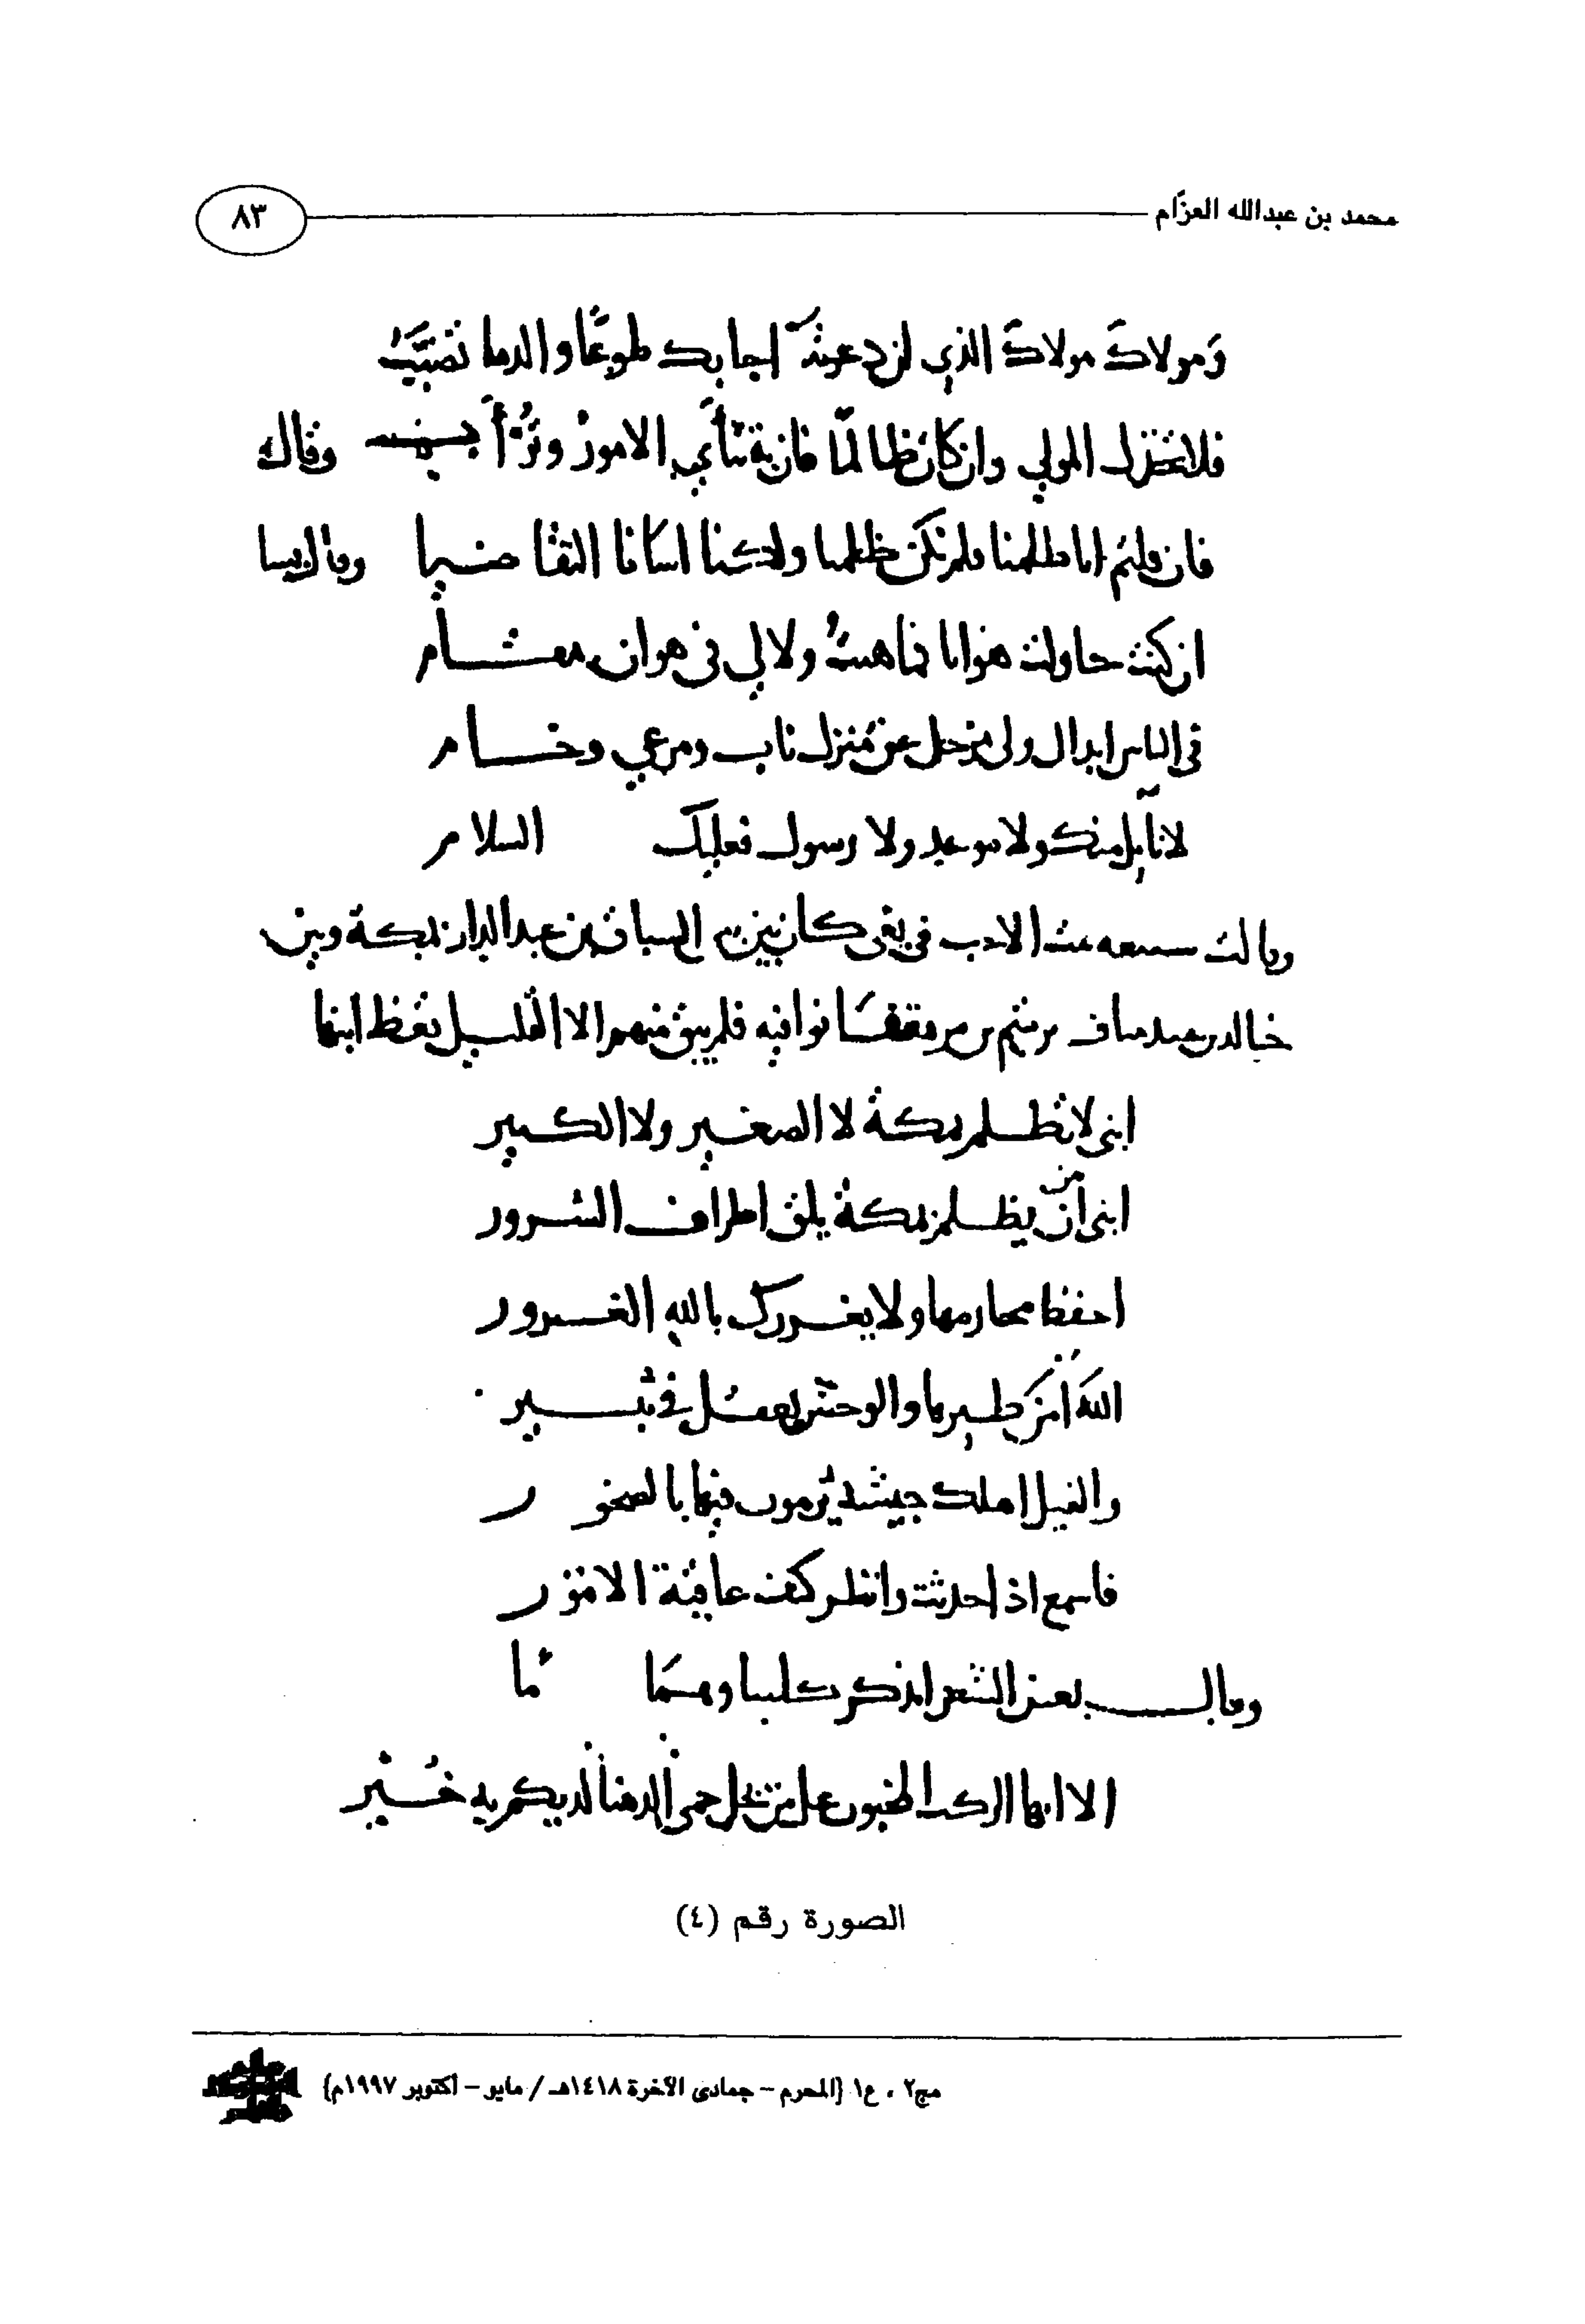 محمد بن عبدالله العزّام
٨٣
وَمولاكَ مولاكَ الذي ان دعوتَه اجابك طوعًا والدما تصبَّبُ
فلا تخذل المولي وان كان ظالمًا فان به تثأي الامورُ وتُرْأَب وقال
فان قلتم انا ظلمنا فلم نكن ظلمنا ولكنا اسانا التقاضيا وقال
ان كنت حاولت هوانا فما هنتُ ولا لي في هوان مقام
في الناس ابدال ولي مزحل عن مُنزل ناب ومرعي وخام
لا نايل منك ولا موعد ولا رسول فعليك السلام
وقالت سبيعه بنت الاحب في بغى كان بين بنى السباق بن عبد الدار بمكة وبين
خالد بن عبد مناف بن تيم بن مره تفانوا فيه فلم يبق منهم الا القليل تعظ ابنها
ابنى لا تظلم بمكة لا الصغير ولا الكبير
ابنى من يظلم بمكة يلق اطراف الشرور
احفظ محارمها ولا يغررك بالله الغرور
اللهُ امَنَ طيرها والوحش يعقل في ثبير
والفيل اهلك جيشه يُرمون فيها بالصخور
فاسمع اذا حدثت وانظر كيف عاقبة الامور
وقال بعض الشعرا يذكر كليبا
الا ايها الركب المخبون على من بخل حمى الدهنا لديكم به خُبْر
الصورة رقم (٤)
مج٢ ، ع١ {المحرم – جمادى الآخرة ١٤١٨هـ / مايو – اكتوبر ١٩٩٧م}